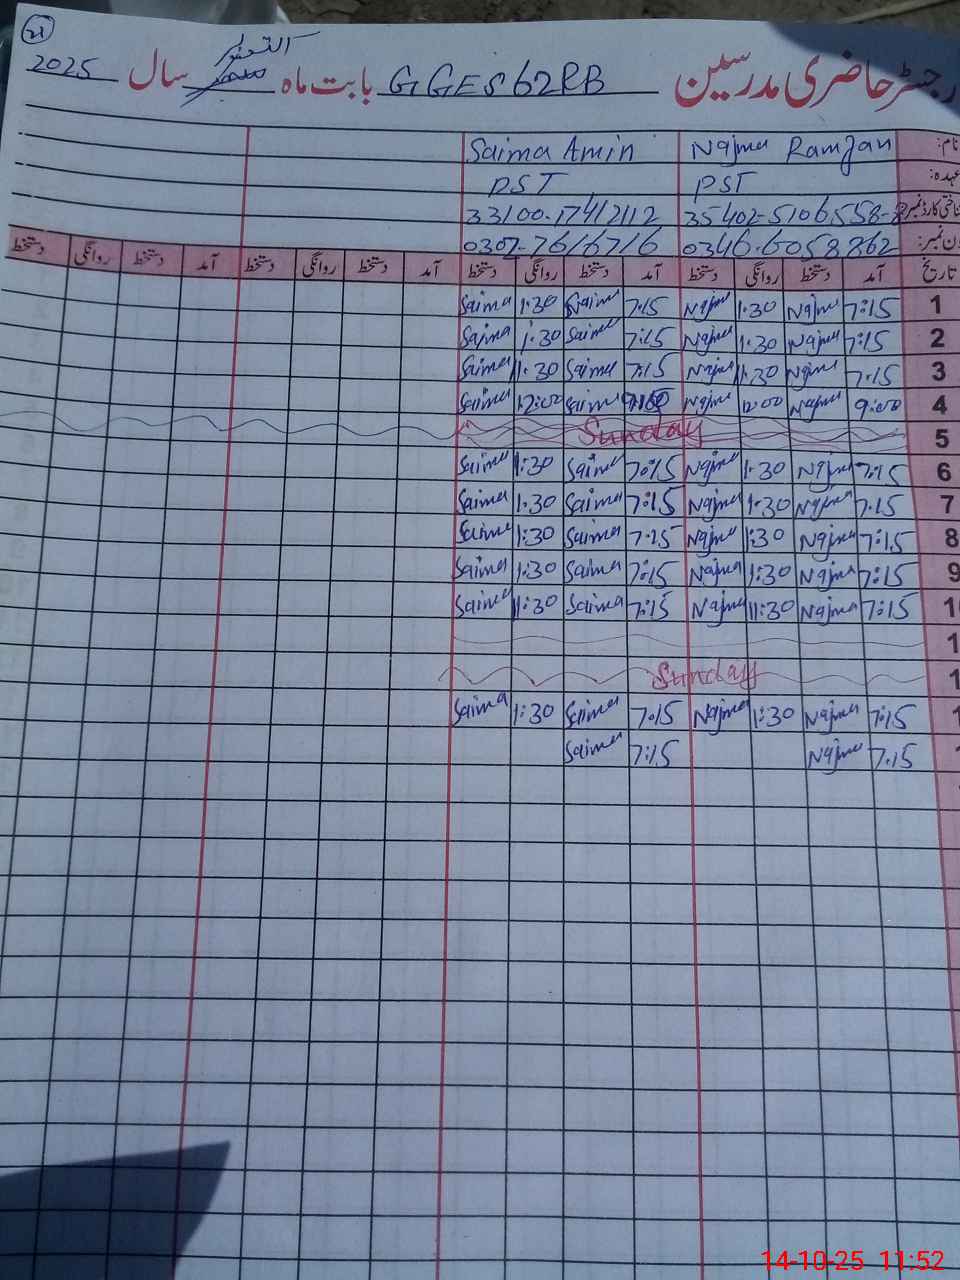 21
رجسٹر حاضری مدرسین GGES 62RB بابت ماہ اکتوبر سال 2025
نام: Najma Ramzan Saima Amin
عہدہ: PST PST
شناختی کارڈ نمبر 35402-5106558-8 33100-17412112
فون نمبر: 0346-6058862 0307-7616716
تاریخ آمد دستخط روانگی دستخط آمد دستخط روانگی دستخط آمد دستخط روانگی دستخط آمد دستخط روانگی دستخط
Saima 1:30 Saima 7:15 Najma 1:30 Najma 7:15 1
Saima 1:30 Saima 7:15 Najma 1:30 Najma 7:15 2
Saima 1:30 Saima 7:15 Najma 1:30 Najma 7:15 3
Saima 12:00 Saima Najma 12:00 Najma 9:00 4
Sunday 5
Saima 1:30 Saima 7:15 Najma 1:30 Najma 7:15 6
Saima 1:30 Saima 7:15 Najma 1:30 Najma 7:15 7
Saima 1:30 Saima 7:15 Najma 1:30 Najma 7:15 8
Saima 1:30 Saima 7:15 Najma 1:30 Najma 7:15 9
Saima 11:30 Saima 7:15 Najma 11:30 Najma 7:15 1
1
Sunday 1
Saima 1:30 Saima 7:15 Najma 1:30 Najma 7:15 1
Saima 7:15 Najma 7:15
14-10-25 11:52